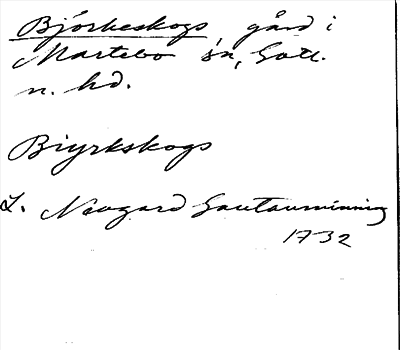 Björkeskogs, gård i
Martebo sn, Gotl.
n. hd.
Biyrkskogs
L. Neogard Gautauminning
1732